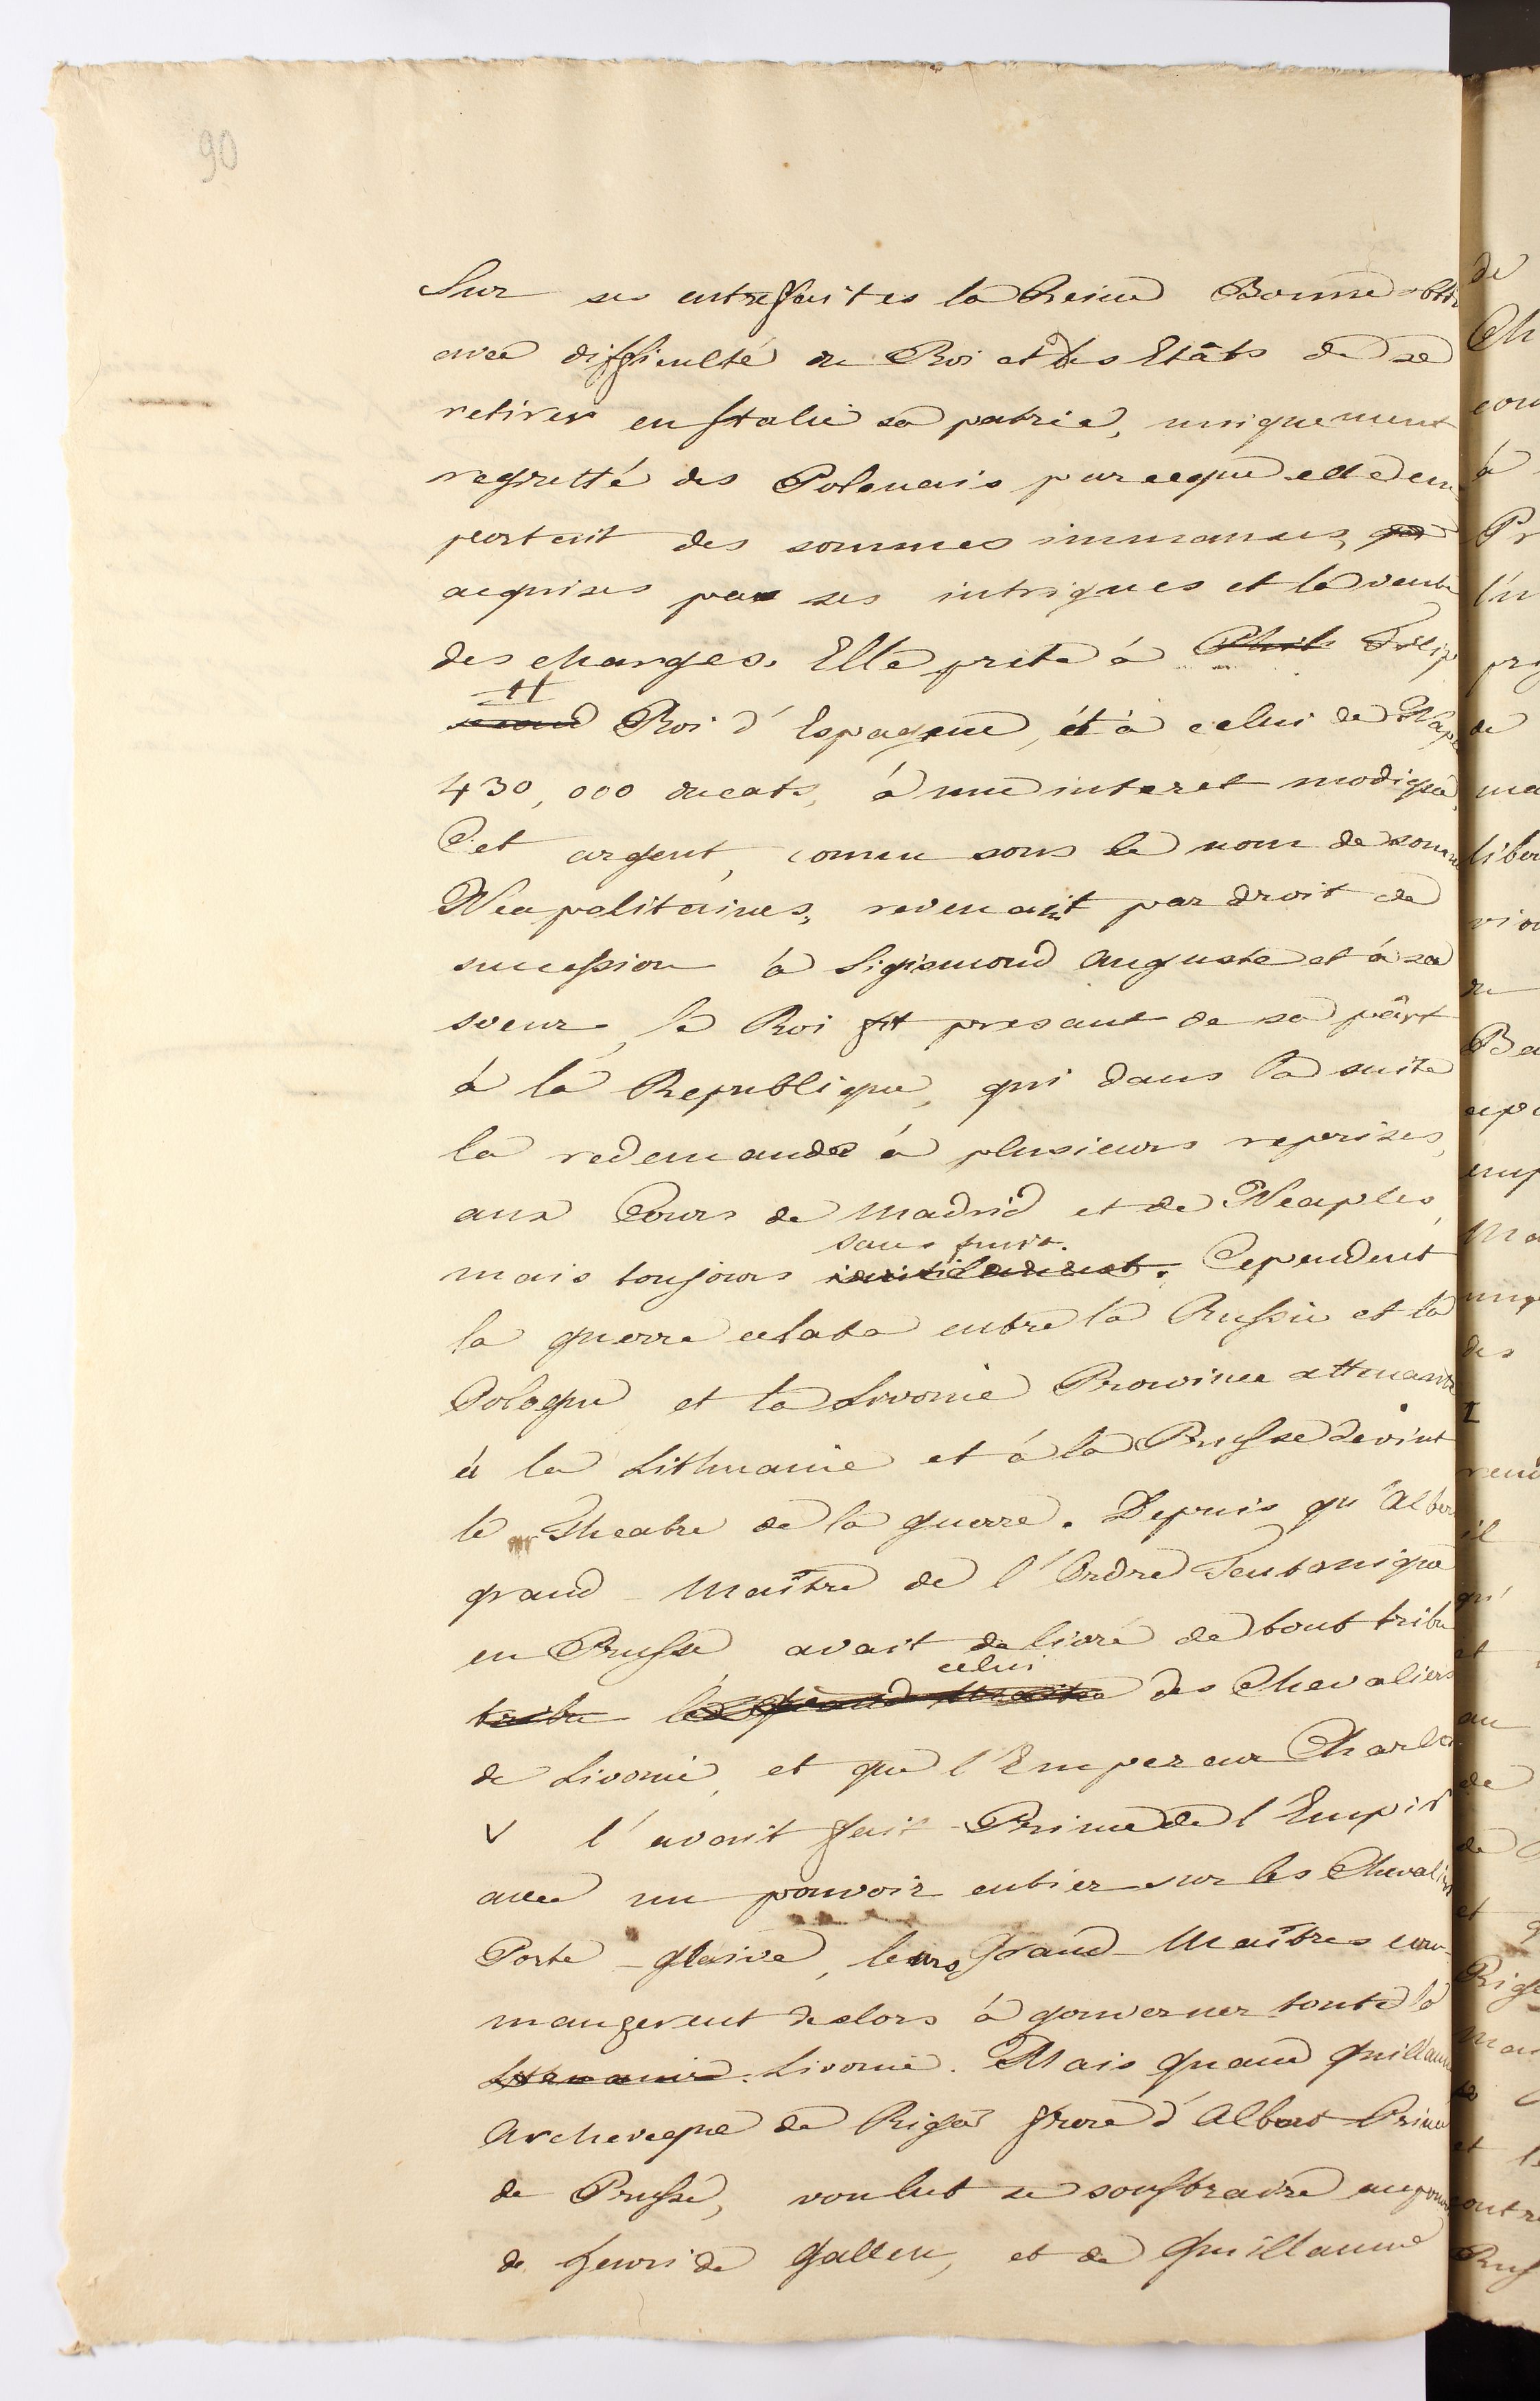 90
Sur ses entrefaites la Reine Bonne obti
avec difficulté du Roi et des Etâts de se
retirer en Italie sa patrie, uniquement
regretté des Polonais parceque elle em
portait des sommes immanses, que
acquises par ses intrigues et la vente
des charges. Elle prêta à Phil Filip
II
second Roi d'Espagne, et à celui de Nap
430,000 ducats, à une interet modique.
Cet argent, connu sous le nom de somm
Neapolitaines, revenait par droit de
succession à Sigismond Auguste et à sa
soeur, le Roi fit present de sa pârt
à la Republique, qui dans la suite
la redemanda à plusieurs reprises,
aux Cours de Madrid et de Neaples,
sans fruit.
mais toujours inutilement. Cependent
la guerre eclata entre la Russie et la
Pologne et la Livonie Prowince attenante
à la Lithuanie et à la Prusse devint
le Theatre de la guerre. Depuis qu'Alber
grand-Maître de l'Ordre Teutonique
en Prusse avait delivré de tout tribu
celui
tribu le grand Maitre des Chevaliers
de Livonie, et que l'Empereur Charles
V l'avait fait Prince de l'Empir
avec un pouvoir entier sur les Chevaliers
Porte-glaive, leurs Grand-Maîtres com-
mangerent deslors à gouverner toute la
Lithuanie Livonie. Mais quand Guillaume
Archeveque de Riga frere d'Albert Prince
de Prusse, voulut se soustraire au pouvo
de Henri de Gallen, et de Guillaume